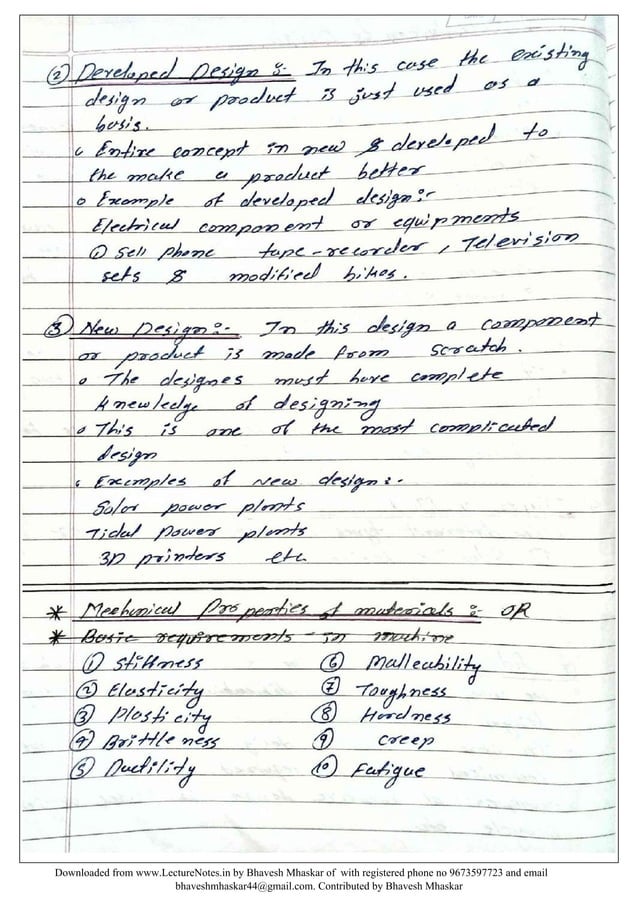 ② Developed Design :- In this case the existing
design or product is just used as a
basis.
Entire concept in new & developed to
the make a product better
o Example of developed design:-
Electrical component or equipments
① Sell phone tape-recorder, Television
sets & modified bikes.
③ New Design:- In this design a component
or product is made from scratch.
o The designes must have complete
knewledge of designing
o This is one of the most complicated
design
Excmples of New design:-
Solar power plants
Tidal Power plants
3D printers etc
* Mechanical Properties of materials :- OR
* Basic requirements - in machine
① Stiffness
② Elasticity
③ Plasticity
④ Brittleness
⑤ Ductility
⑥ Malleability
⑦ Toughness
⑧ Hardness
⑨ creep
⑩ Fatigue
Downloaded from www.LectureNotes.in by Bhavesh Mhaskar of with registered phone no 9673597723 and email
bhaveshmhaskar44@gmail.com. Contributed by Bhavesh Mhaskar